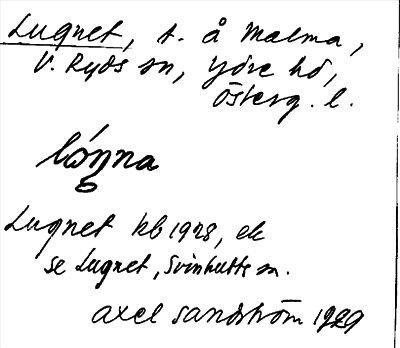 Lugnet, t. å Malma,
V. Ryds sn, Ydre hd,
Österg. l.
Lugnet kb 1928, ek
se Lugnet, Svinhults sn.
Axel Sandström 1929